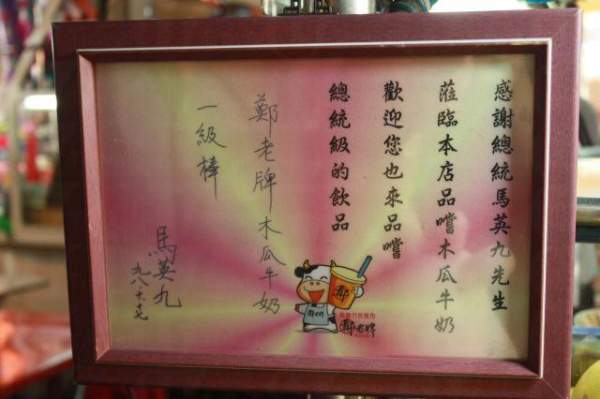 感謝總統馬英九先生
蒞臨本店品嚐木瓜牛奶
歡迎您也來品嚐
總統級的飲品
鄭老牌木瓜牛奶
一級棒
馬英九
鄭
鄭老牌